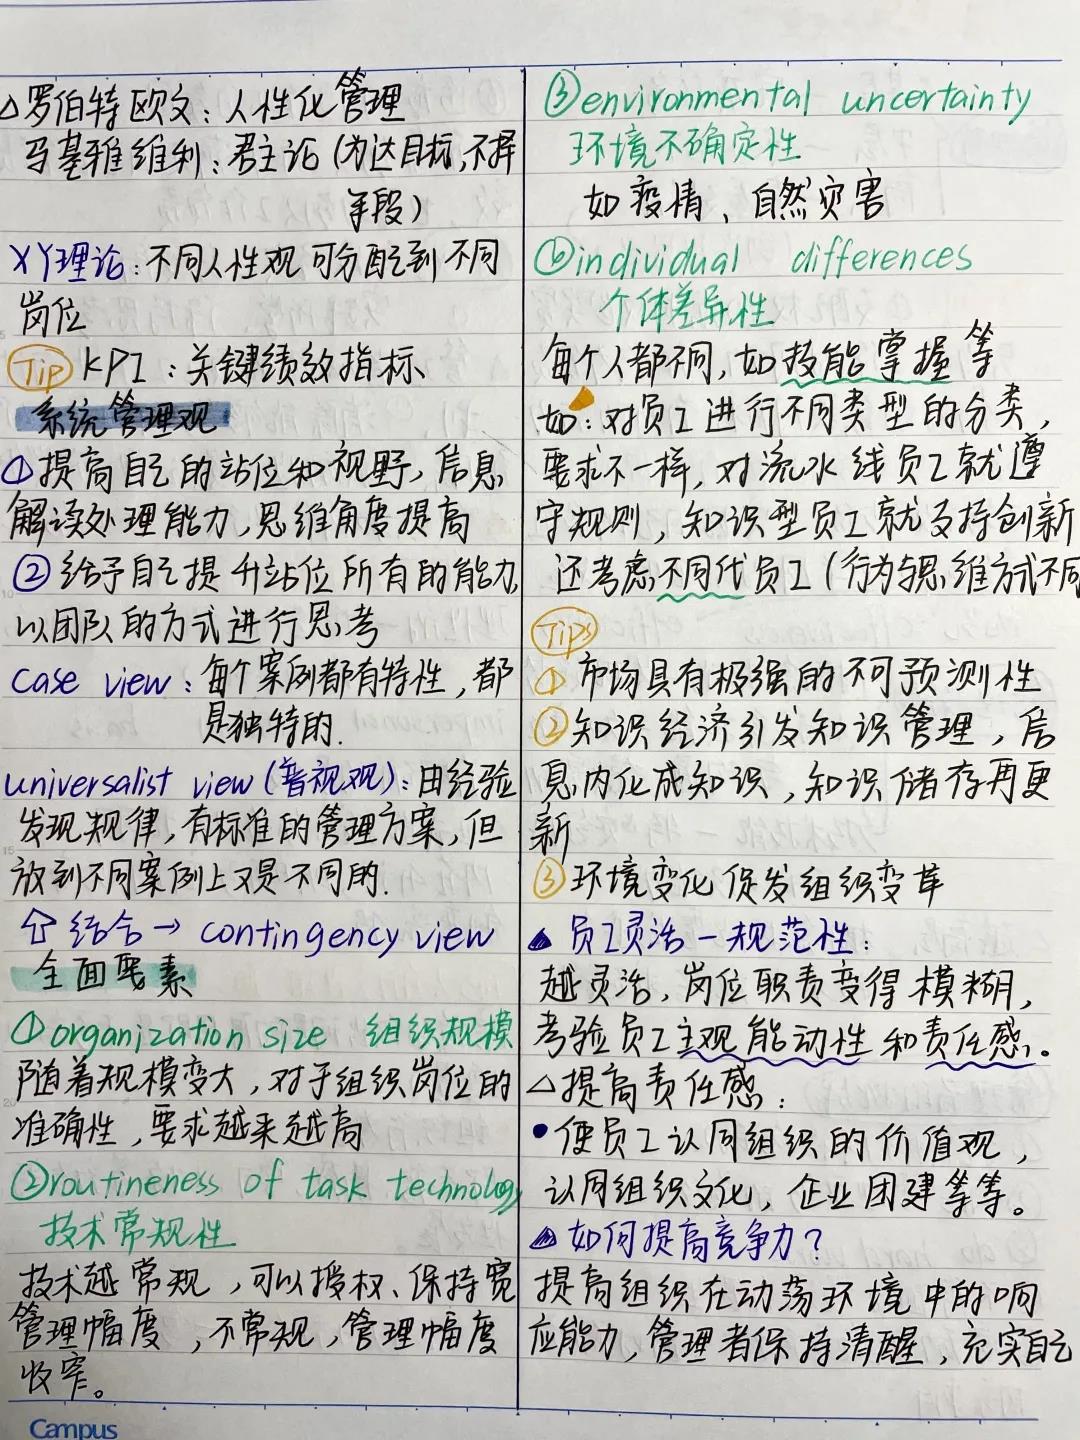 △罗伯特欧文：人性化管理
马基雅维利：君主论（为达目标，不择
手段）
XY理论：不同人性观可分配到不同
岗位
Tip KPI：关键绩效指标、
系统管理观
①提高自己的站位和视野，信息
解读处理能力，思维角度提高
②给予自己提升站位所有的能力，
以团队的方式进行思考
case view：每个案例都有特性，都
是独特的.
universalist view（普视观）：由经验
发现规律，有标准的管理方案，但
放到不同案例上又是不同的.
⇧结合→ contingency view
全面要素
①organization size 组织规模
随着规模变大，对于组织岗位的
准确性，要求越来越高
②routineness of task technology
技术常规性
技术越常规，可以授权、保持宽
管理幅度，不常规，管理幅度
收窄。
③environmental uncertainty
环境不确定性
如疫情、自然灾害
⑥individual differences
个体差异性
每个人都不同，如技能掌握等
如：对员工进行不同类型的分类，
要求不一样，对流水线员工就遵
守规则，知识型员工就支持创新
还考虑不同代员工（行为与思维方式不同
Tips
①市场具有极强的不可预测性
②知识经济引发知识管理，信
息内化成知识，知识储存再更
新
③环境变化促发组织变革
▲员工灵活－规范性：
越灵活，岗位职责变得模糊，
考验员工主观能动性和责任感。
△提高责任感：
•使员工认同组织的价值观，
认同组织文化，企业团建等等。
▲如何提高竞争力？
提高组织在动荡环境中的响
应能力，管理者保持清醒，充实自己
Campus